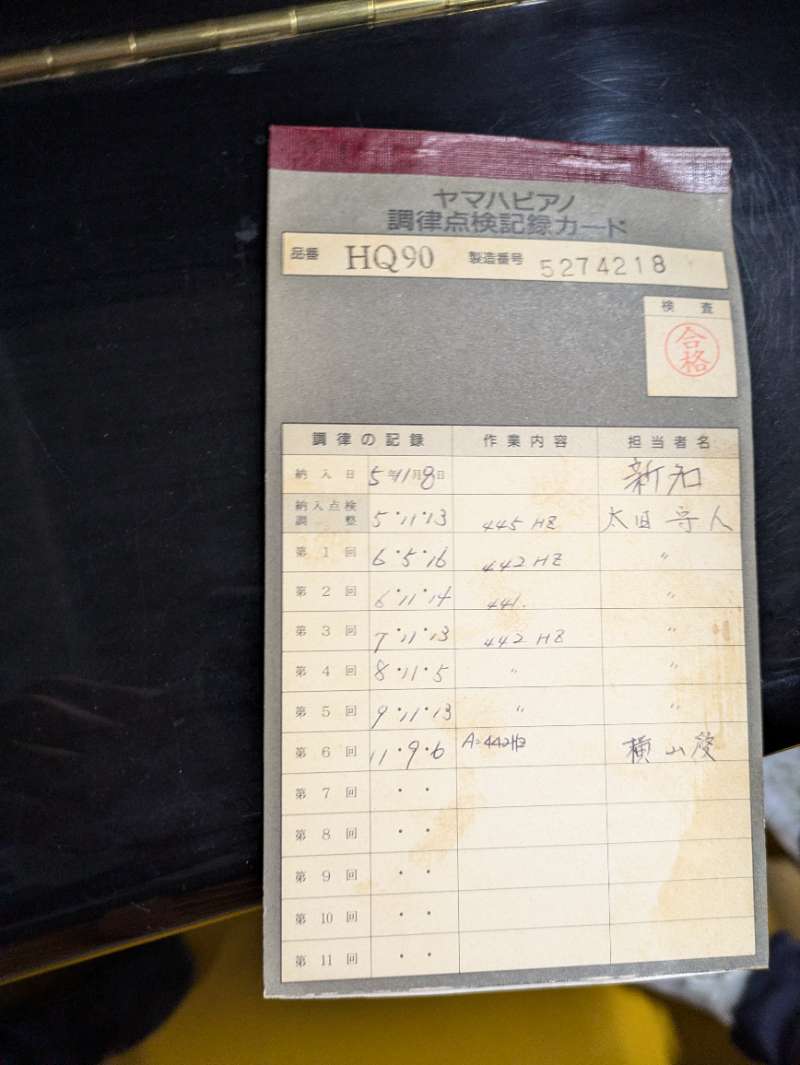 ヤマハピアノ
調律点検記録カード
品番 HQ90 製造番号 5274218
検査
合格
調律の記録 作業内容 担当者名
納入日 5年11月8日 新知
納入点検調整 5・11・13 445 HZ 太田守人
第1回 6・5・16 442 HZ 〃
第2回 6・11・14 441. 〃
第3回 7・11・13 442 HZ 〃
第4回 8・11・5 〃 〃
第5回 9・11・13 〃 〃
第6回 11・9・6 A=442Hz 横山
第7回 ・・
第8回 ・・
第9回 ・・
第10回 ・・
第11回 ・・